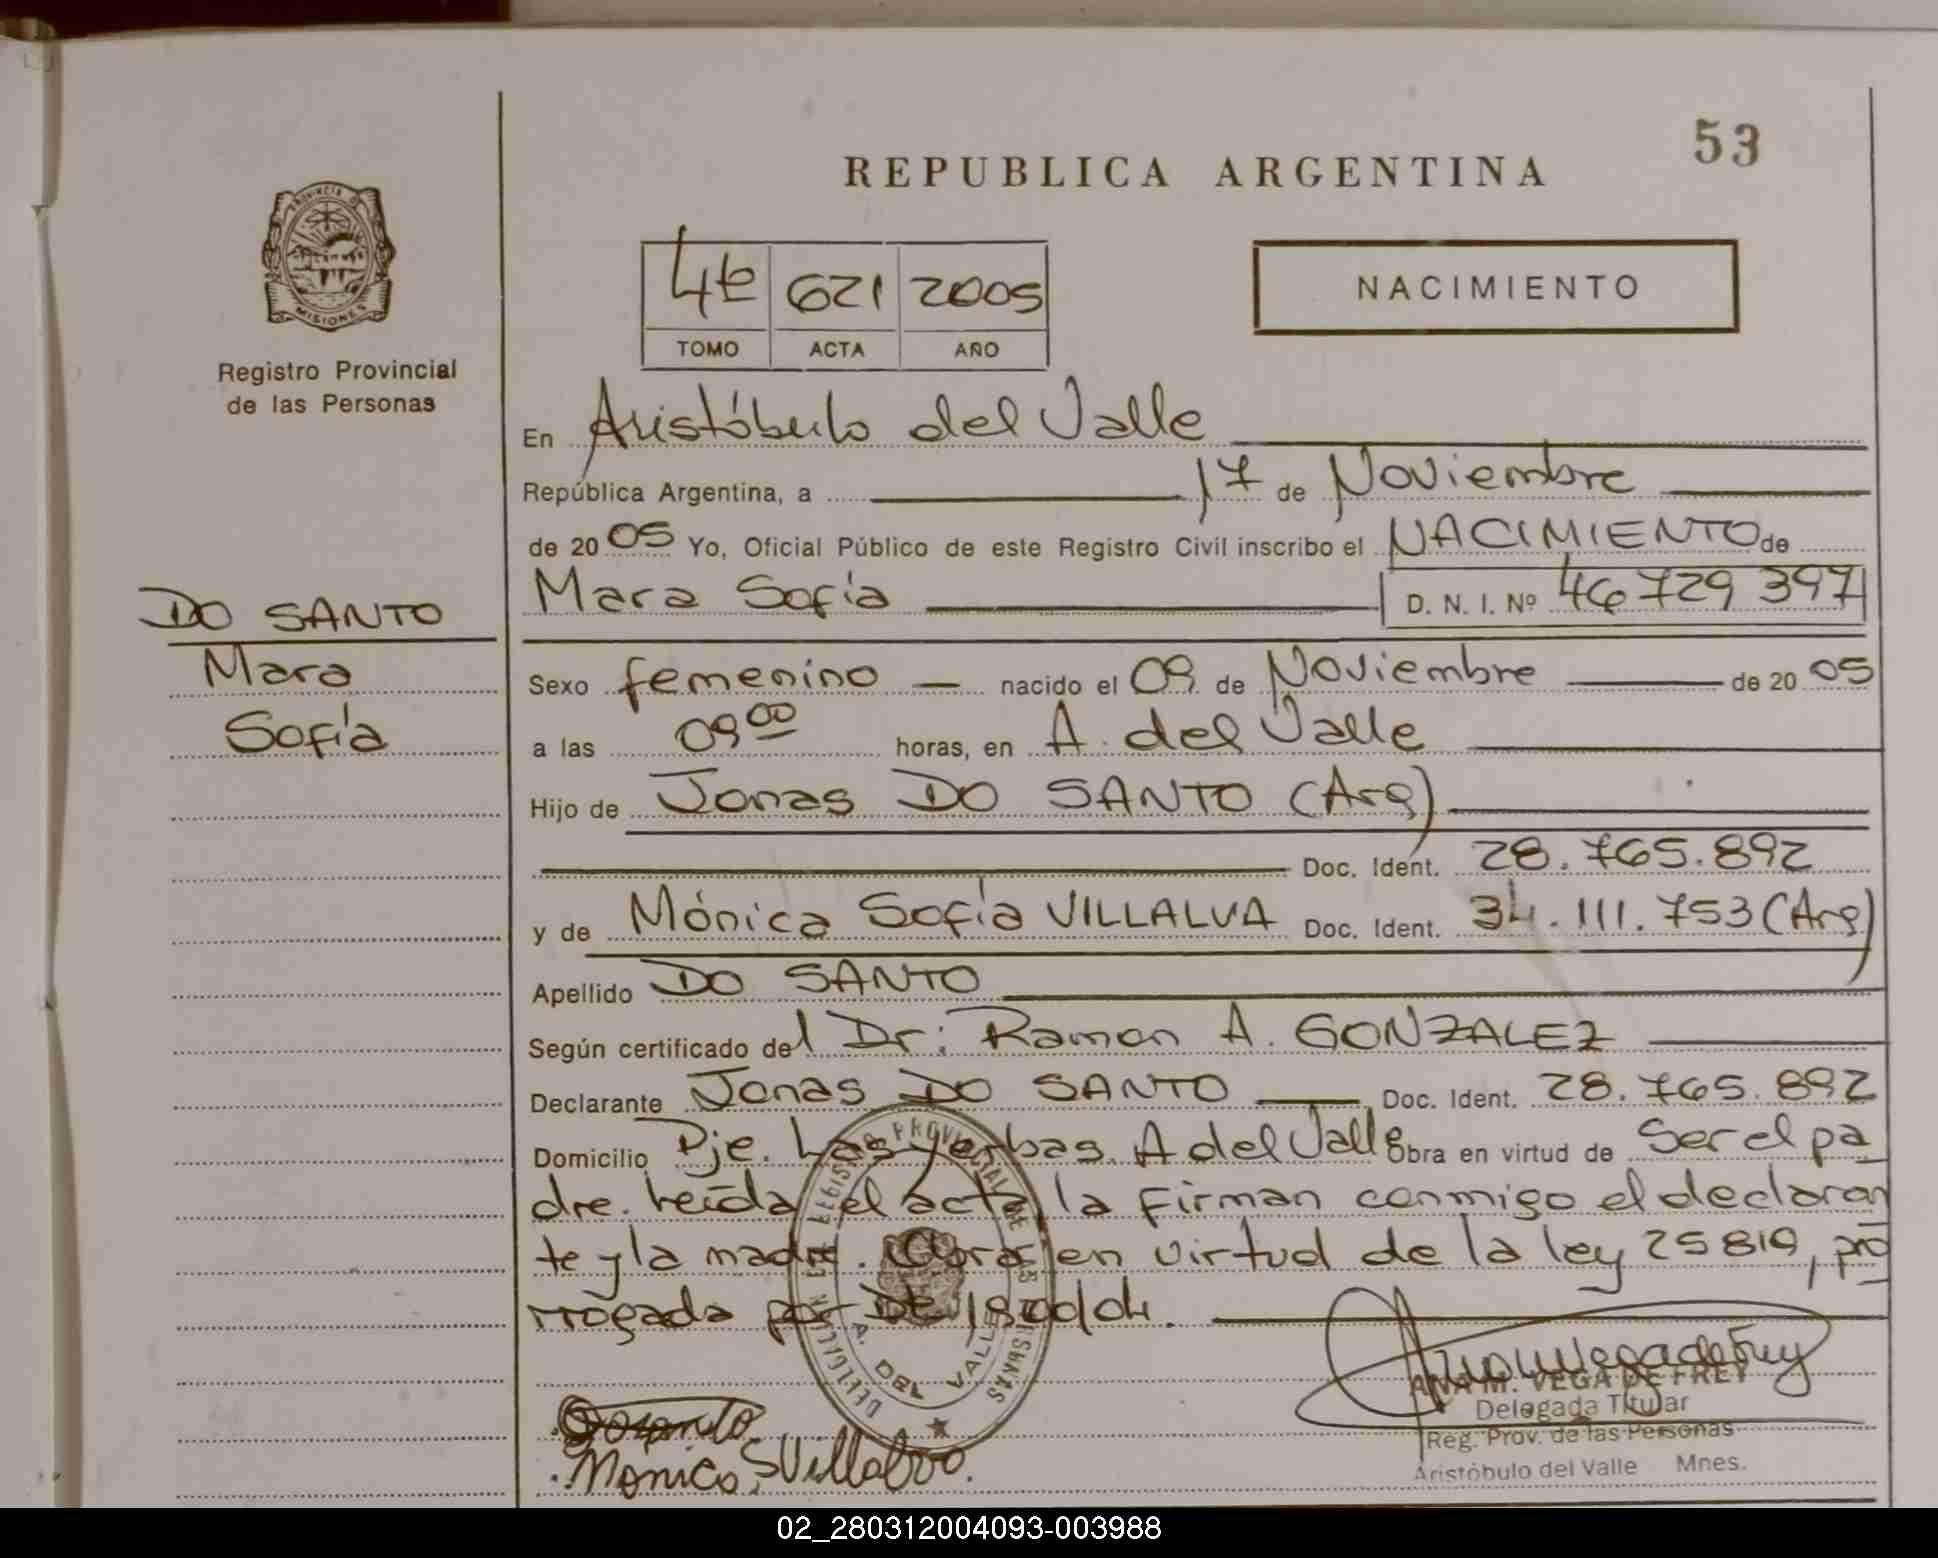 53
REPUBLICA ARGENTINA
PROVINCIA D
MISIONES
Registro Provincial
de las Personas
4t 621 2005
TOMO ACTA AÑO
NACIMIENTO
En Aristóbulo del Valle
República Argentina, a 17 de Noviembre
de 2005 Yo, Oficial Público de este Registro Civil inscribo el NACIMIENTO de
Mara Sofía D. N. I. Nº 46 729 397
DO SANTO
Mara
Sofía
Sexo femenino nacido el 09 de Noviembre de 2005
a las 09 00 horas, en A. del Valle
Hijo de Jonas DO SANTO (Arg)
Doc. Ident. 28.765.892
y de Mónica Sofía VILLALVA Doc. Ident. 34.111.753 (Arg)
Apellido DO SANTO
Según certificado del Dr: Ramon A. GONZALEZ
Declarante Jonas DO SANTO Doc. Ident. 28.765.892
Domicilio Pje. Las Yerbas. A del Valle Obra en virtud de Ser el pa
dre. Leída el acta la firman conmigo el declaran
te y la madre. Obra en virtud de la ley 25819, pró
rrogada por
A. DEL VALLE
Dosanto
Monica S Villalva.
ANA M. VEGA DE FREY
Delegada Titular
Reg. Prov. de las Personas
Aristóbulo del Valle Mnes.
02_280312004093-003988